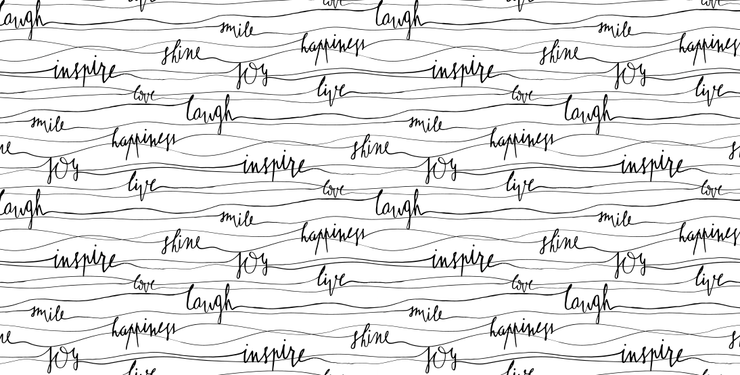 love love
laugh smile laugh smile
shine happiness shine happiness
inspire joy inspire joy
love live love live
laugh laugh
smile happiness smile happiness
shine shine
joy inspire joy inspire
live love live love
laugh smile laugh smile
shine happiness shine happiness
inspire joy inspire joy
love live love live
laugh laugh
smile happiness smile happiness
shine shine
joy inspire joy inspire
live live